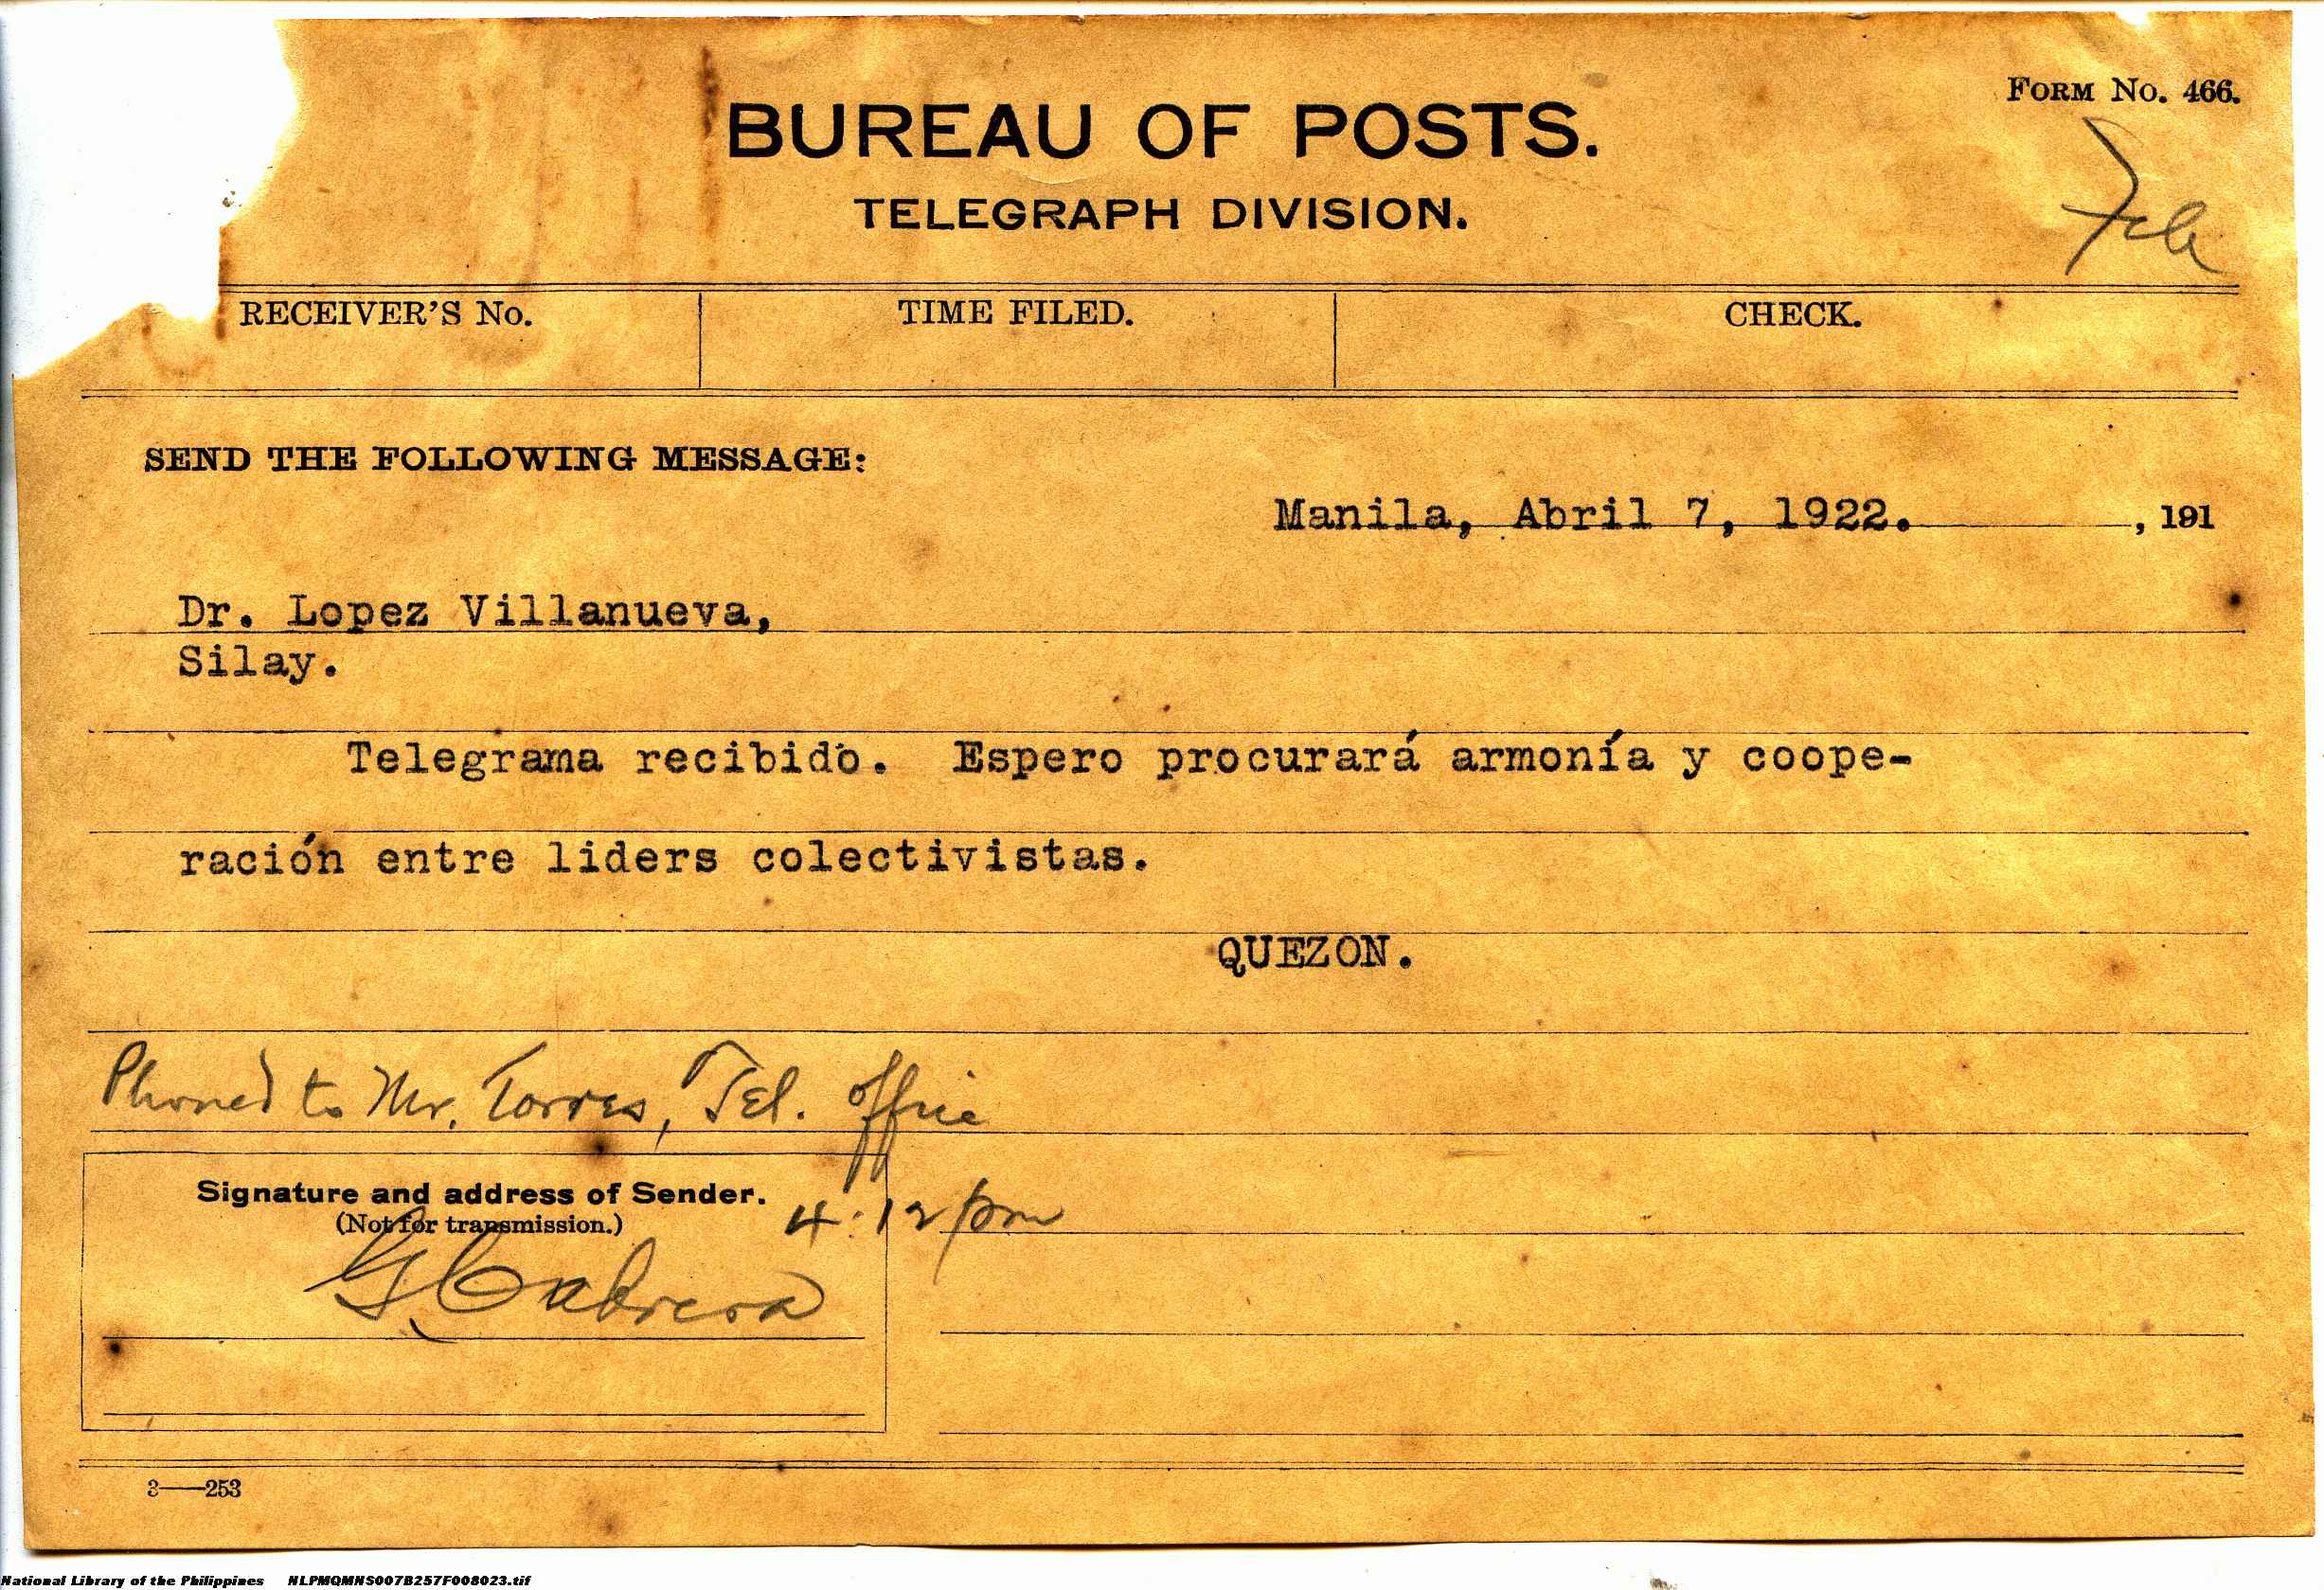 FORM No. 466.
BUREAU OF POSTS.
TELEGRAPH DIVISION.
RECEIVER'S No. TIME FILED. CHECK.
SEND THE FOLLOWING MESSAGE:
Manila, Abril 7, 1922. , 191
Dr. Lopez Villanueva,
Silay.
Telegrama recibido. Espero procurará armonía y coope-
ración entre liders colectivistas.
QUEZON.
Phoned to Mr. Torres, Tel. Office
4:12 pm
Signature and address of Sender.
(Not for transmission.)
G. Cabrera
3—253
National Library of the Philippines NLPMQMNS007B257F008023.tif